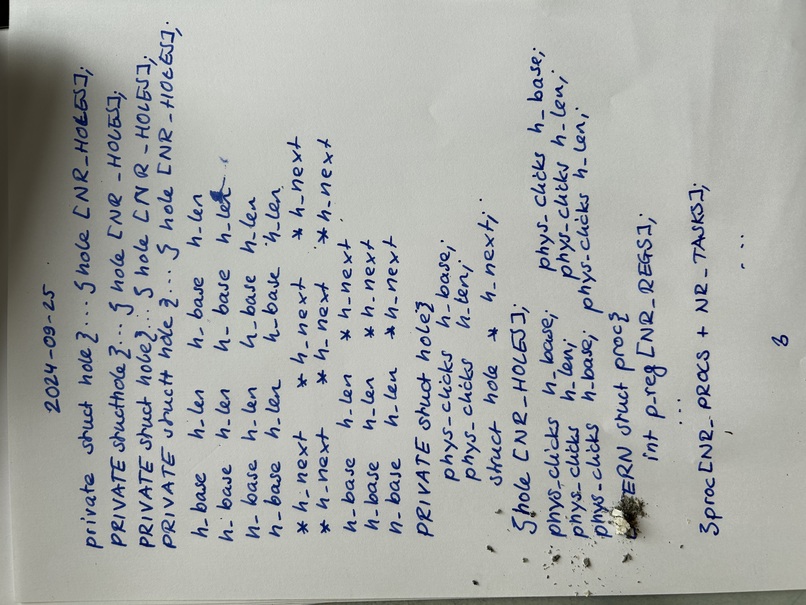 2024-09-25
private struct hole } ... } hole [NR_HOLES];
PRIVATE structhole } ... } hole [NR_HOLES];
PRIVATE struct hole } ... } hole [NR_HOLES];
PRIVATE struct hole } ... } hole [NR_HOLES];
h_base h_len h_base h_len
h_base h_len h_base h_len
h_base h_len h_base h_len
h_base h_len h_base h_len
*h_next *h_next *h_next
*h_next *h_next *h_next
h_base h_len *h_next
h_base h_len *h_next
h_base h_len *h_next
PRIVATE struct hole }
phys_clicks h_base;
phys_clicks h_len;
struct hole * h_next;
} hole [NR_HOLES];
phys_clicks h_base; phys_clicks h_base;
phys_clicks h_len; phys_clicks h_len;
phys_clicks h_base; phys_clicks h_len;
ERN struct proc }
int p_reg [NR_REGS];
...
} proc [NR_PROCS + NR_TASKS];
...
3